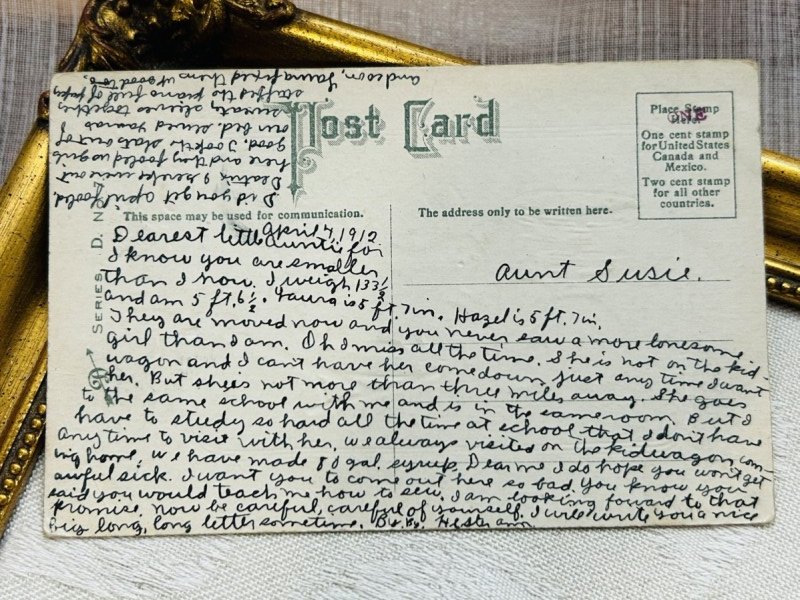 Post Card
Place Stamp
Here.
One cent stamp
for United States
Canada and
Mexico.
Two cent stamp
for all other
countries.
ONE
This space may be used for communication.
The address only to be written here.
SERIES, D. No.
Aunt Susie.
April 7, 1912
Dearest little Auntie for
I know you are smaller
than I now. I weigh 133½
and am 5 ft. 6½. Laura is 5 ft. 7 in. Hazel is 5 ft. 7 in.
They are moved now and you never saw a more lonesome
girl than I am. Oh I miss all the time. She is not on the kid
wagon and I can't have her come down just any time I want
her. But shees not more than three miles away. She goes
to the same school with me and is in the same room. But I
have to study so hard all the time at school that I don't have
any time to visit with her, we always visited on the kidwagon com-
ing home, we have made 80 gal. syrup. Dear me I do hope you won't get
awful sick. I want you to come out here so bad. You know you
said you would teach me how to sew. I am looking forward to that
promise. now be careful, careful of yourself. I will write you a nice
big long, long letter sometime. By By. Hester ann.
Did you get april foold.
Beatrix 9 were out
here and they fooled us girls
good. Took the slats out of
our bed, sewed
sleeves together
stuffed the piano full of paper
and corn, Laura fixed them up good too.